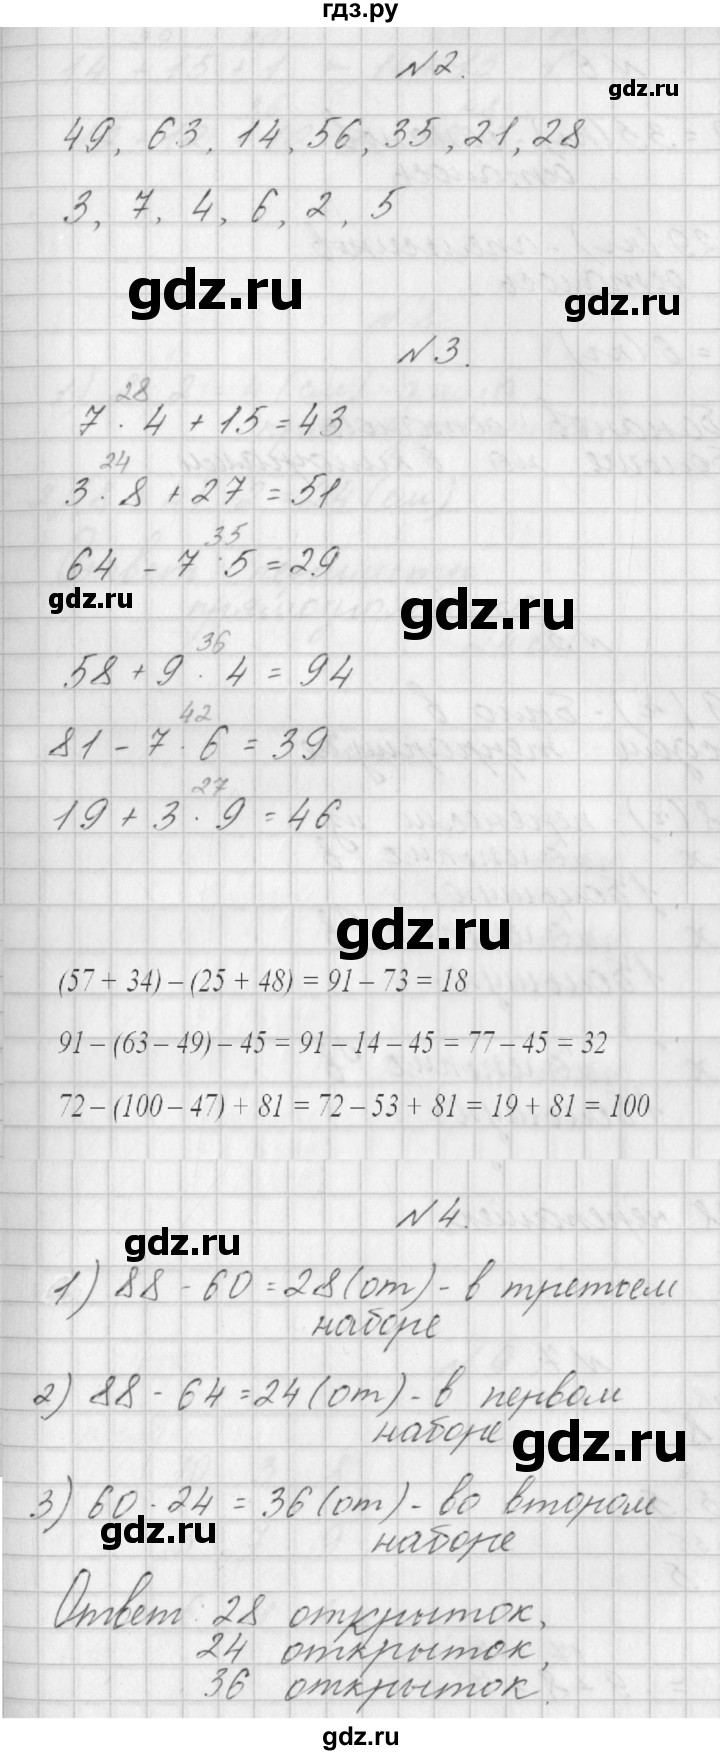 гдз.ру
N2.
gdz.ru
49, 63, 14, 56, 35, 21, 28
3, 7, 4, 6, 2, 5
gdz.ru
gdz.ru
N3.
28
7 · 4 + 15 = 43
24
3 · 8 + 27 = 51
35
64 - 7 · 5 = 29
gdz.ru
gdz.ru
36
58 + 9 · 4 = 94
42
81 - 7 · 6 = 39
27
19 + 3 · 9 = 46
gdz.ru
(57 + 34) – (25 + 48) = 91 – 73 = 18
91 – (63 – 49) – 45 = 91 – 14 – 45 = 77 – 45 = 32
72 – (100 – 47) + 81 = 72 – 53 + 81 = 19 + 81 = 100
N4.
gdz.ru
1) 88 - 60 = 28 (от) - в третьем
наборе
2) 88 - 64 = 24 (от) - в первом
наборе
gdz.ru
3) 60 - 24 = 36 (от) - во втором
gdz.ru
наборе
Ответ: 28 открыток,
24 открыток,
36 открыток.
gdz.ru